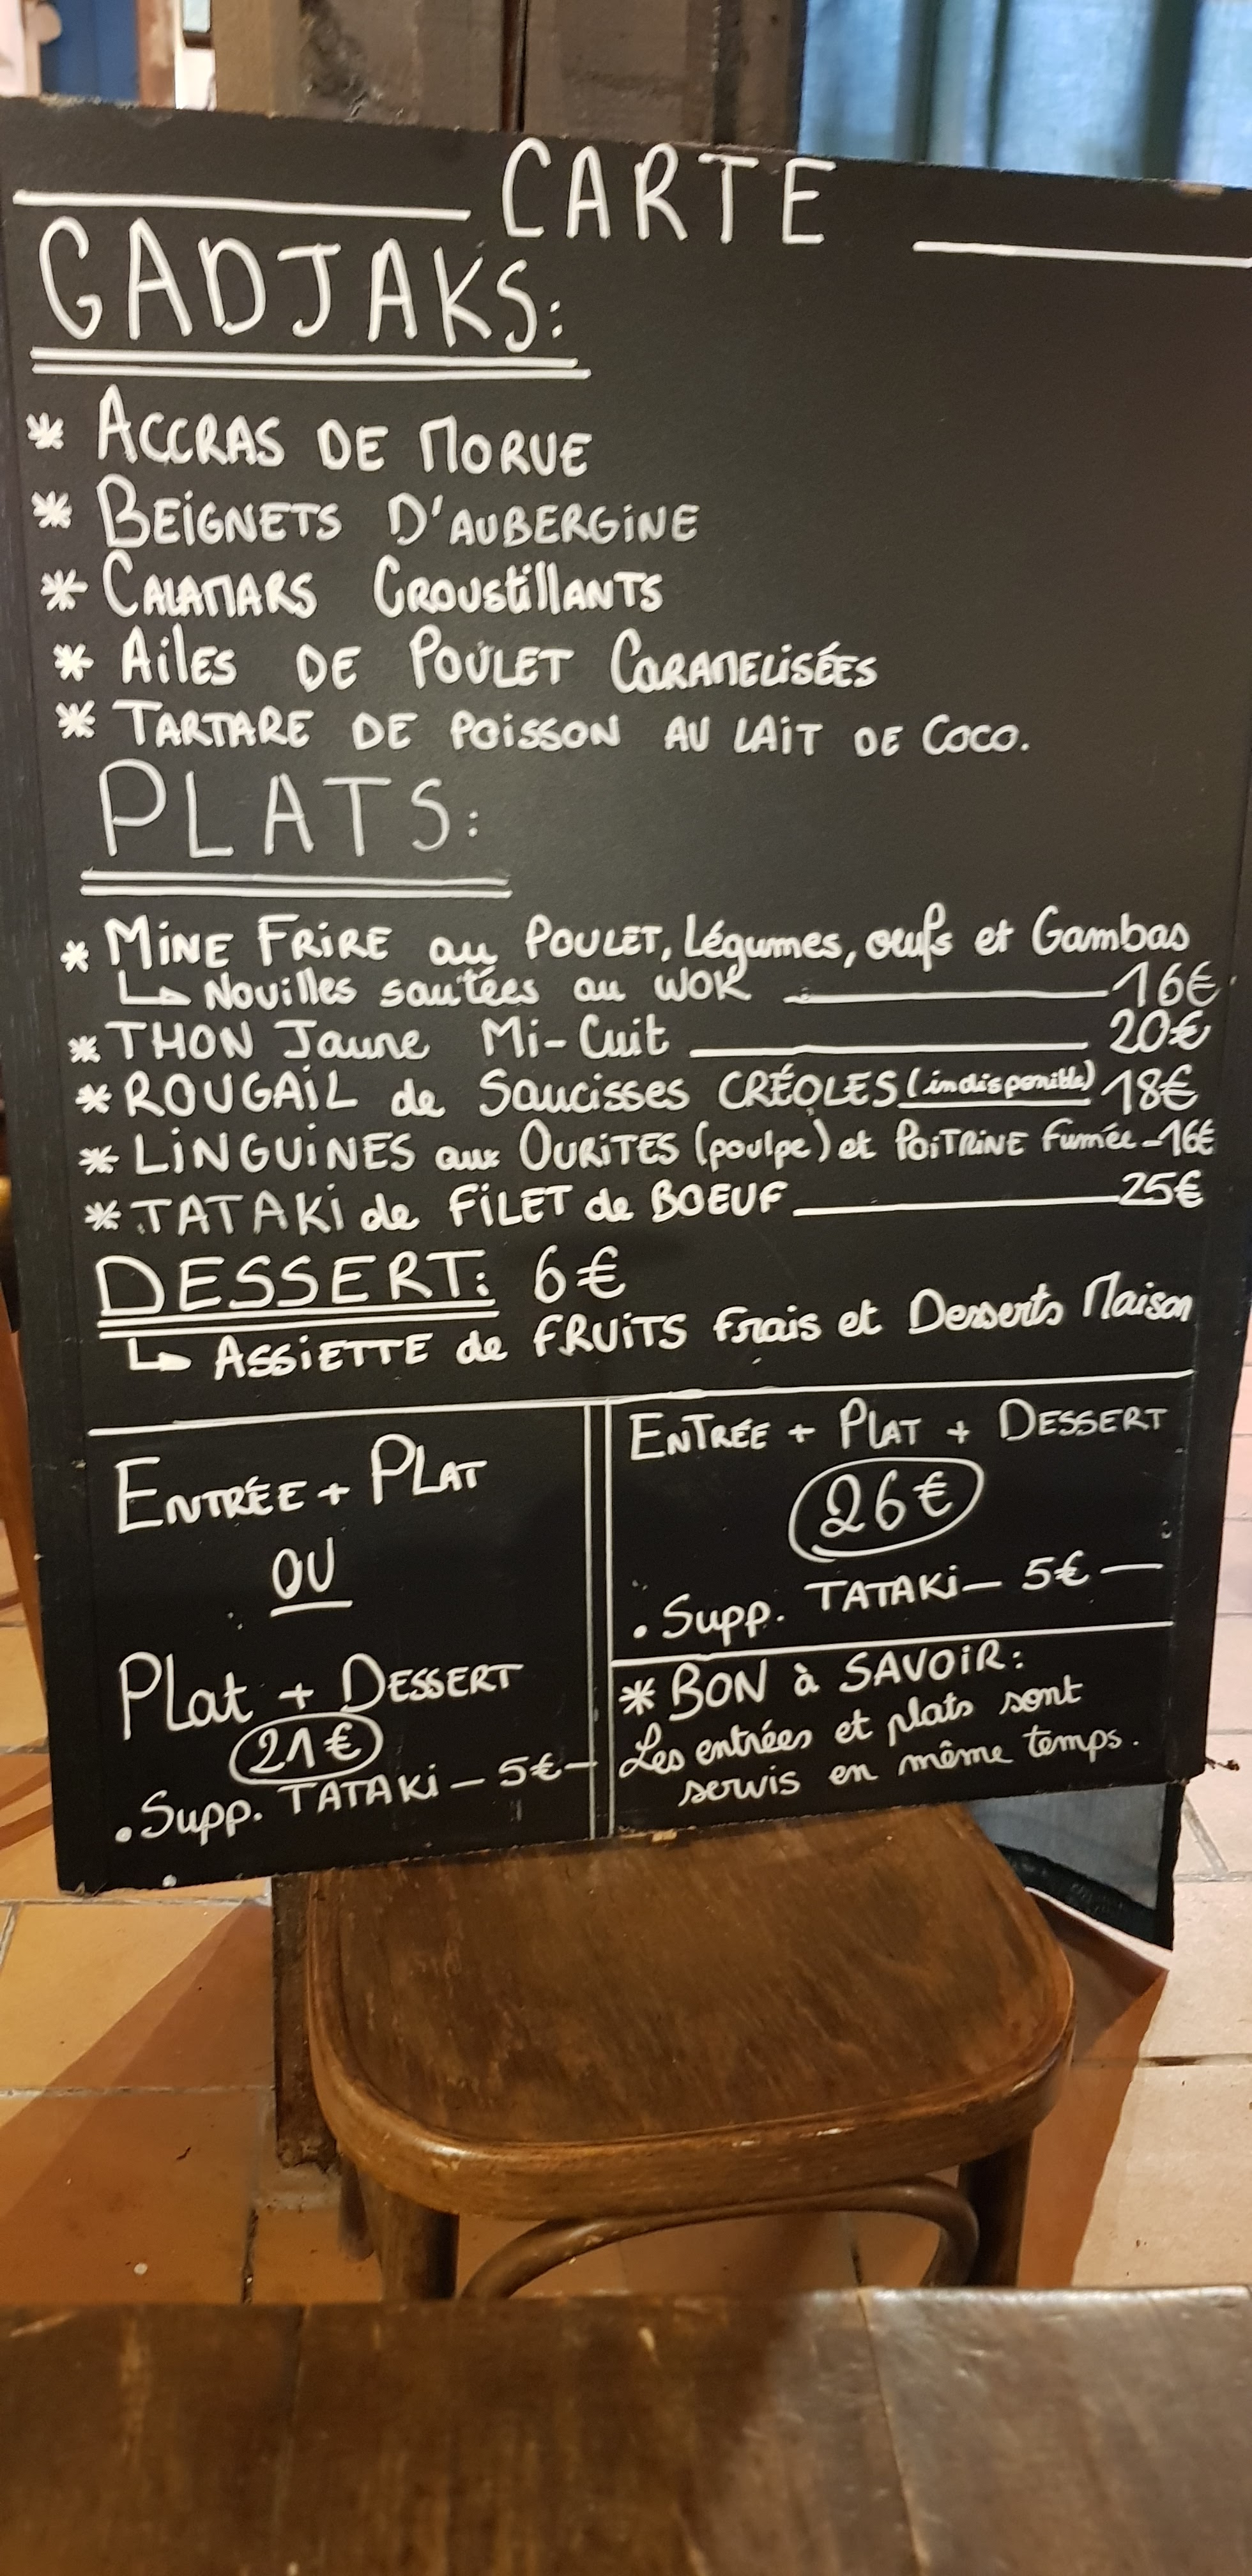 CARTE
GADJAKS:
* ACCRAS DE MORUE
* BEIGNETS D'AUBERGINE
* CALAMARS CROUSTILLANTS
* AILES DE POULET CARAMELISÉES
* TARTARE DE POISSON AU LAIT DE COCO.
PLATS:
* MINE FRIRE au POULET, Légumes, oeufs et Gambas
↳ Nouilles sautées au WOK 16€
* THON Jaune Mi-Cuit 20€
* ROUGAIL de Saucisses CRÉOLES (indisponible) 18€
* LINGUINES aux OURITES (poulpe) et POITRINE Fumée - 16€
* TATAKI de FILET de BOEUF 25€
DESSERT: 6€
↳ ASSIETTE de FRUITS Frais et Desserts Maison
ENTRÉE + PLAT
OU
Plat + DESSERT
21€
. Supp. TATAKI - 5€ -
ENTRÉE + PLAT + DESSERT
26€
. Supp. TATAKI - 5€ -
* BON à SAVOIR:
Les entrées et plats sont
servis en même temps.